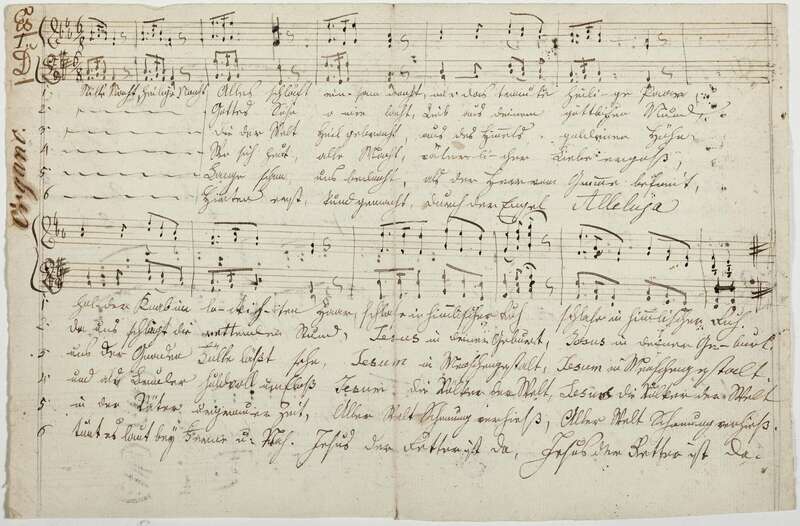 Es Dis
Organo.
1 Stille Nacht, heilige Nacht Alles schläft einsam wacht, nur das traute heilige Paar,
2 Gottes Sohn o wie lacht, Lieb aus deinem göttlichen Mund,
3 die der Welt Heil gebracht, aus des Himmels goldenen Höhn,
4 Wo sich heut, alle Macht, väterlicher Liebe ergoß,
5 Lange schon, uns bedacht, als der Herr vom Grimme befreit,
6 Hirten erst, kund gemacht, durch der Engel Alleluja
1 holder Knab im lockichten Haar, schlafe in himmlischer Ruh, schlafe in himmlischer Ruh.
2 da uns schlägt die rettende Stund, Jesus in deiner Geburt, Jesus in deiner Geburt.
3 uns der Gnaden Fülle läßt sehn, Jesum in Menschengestalt, Jesum in Menschengestalt.
4 und als Bruder huldvoll umschloß Jesus die Völker der Welt, Jesus die Völker der Welt
5 in der Väter urgrauer Zeit, Aller Welt Schonung verhieß, Aller Welt Schonung verhieß.
6 tönt es laut bey Ferne u. Nah. Jesus der Retter ist da, Jesus der Retter ist da.